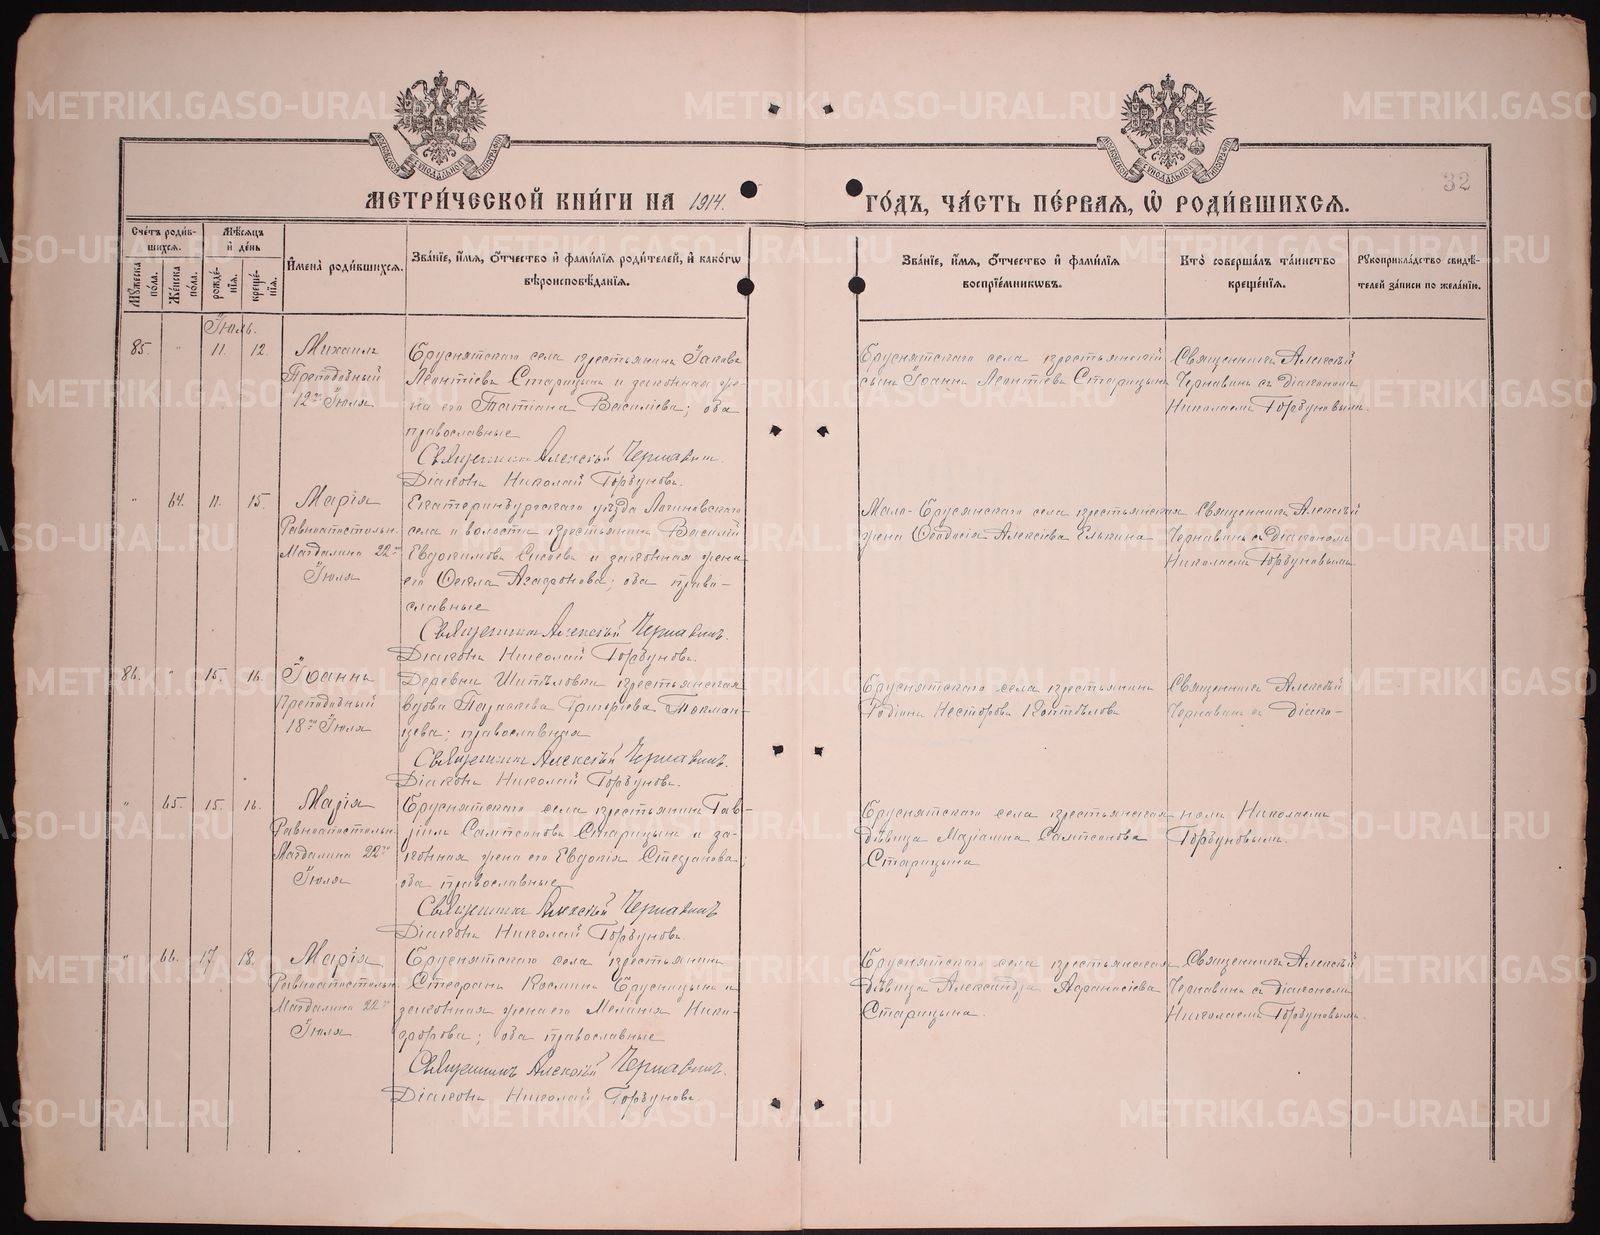 МОСКОВСКОЙ СѴНОДАЛЬНОЙ ТИПОГРАФІИ
МОСКОВСКОЙ СѴНОДАЛЬНОЙ ТИПОГРАФІИ
32
МЕТРИ́ЧЕСКОЙ КНИ́ГИ НА 1914.
ГО́ДЪ, ЧА́СТЬ ПЕ́РВАЯ, Ѡ҆ РОДИ́ВШИХСЯ.
Сче́тъ роди́в-
шихся.
Мꙋ́жеска по́ла.
Же́нска по́ла.
Мѣ́сяцъ
и҆ де́нь
рожде́-
нія.
креще́-
нія.
И҆мена̀ роди́вшихся.
Зва́ніе, и҆́мя, ѻ҆́тчество и҆ фами́лія роди́телей, и҆ како́гѡ
вѣроисповѣ́данія.
Зва́ніе, и҆́мя, ѻ҆́тчество и҆ фами́лія
воспріе́мникѡвъ.
Кто̀ соверша́лъ та́инство
креще́нія.
Рꙋкоприкла́дство свидѣ́-
телей за́писи по жела́нію.
Іюль.
85. " 11. 12.
Михаилъ
Преподобный
12го Іюля
Бруснятскаго села крестьянинъ Іаковъ
Леонтіевъ Старицынъ и законная же-
на его Татіана Василіева; оба
православные
Священникъ Алексѣй Чернавинъ.
Діаконъ Николай Горбуновъ.
Бруснятскаго села крестьянскій
сынъ Іоаннъ Леонтіевъ Старицынъ
Священникъ Алексѣй
Чернавинъ съ Діакономъ
Николаемъ Горбуновымъ.
" 64. 11. 15.
Марія
Равноапостольн.
Магдалина 22го
Іюля
Екатеринбургскаго уѣзда Логиновскаго
села и волости крестьянинъ Василій
Евдокимовъ Сысоевъ и законная жена
его Ѳекла Агафонова; оба право-
славные
Священникъ Алексѣй Чернавинъ.
Діаконъ Николай Горбуновъ.
Мало-Брусянскаго села крестьянская
жена Ѳеодосія Алексіева Елькина
Священникъ Алексѣй
Чернавинъ съ Діакономъ
Николаемъ Горбуновымъ
86. " 15. 16.
Іоаннъ
Преподобный
18го Іюля
Деревни Шипѣловки крестьянская
вдова Параскева Григоріева Токман-
цева; православная
Священникъ Алексѣй Чернавинъ.
Діаконъ Николай Горбуновъ.
Бруснятскаго села крестьянинъ
Родіонъ Несторовъ Коптѣловъ
Священникъ Алексѣй
Чернавинъ съ Діако-
" 65. 15. 16.
Марія
Равноапостольн.
Магдалина 22го
Іюля
Бруснятскаго села крестьянинъ Гав-
ріилъ Сампсоновъ Старицынъ и за-
конная жена его Евдокія Стефанова;
оба православные
Священникъ Алексѣй Чернавинъ
Діаконъ Николай Горбуновъ.
Бруснятскаго села крестьянская
дѣвица Маріамна Сампсонова
Старицына
номъ Николаемъ
Горбуновымъ.
" 66. 17. 18.
Марія
Равноапостольн.
Магдалина 22го
Іюля
Бруснятскаго села крестьянинъ
Стефанъ Косминъ Брусницынъ и
законная жена его Меланія Ники-
форова; оба православные
Священникъ Алексѣй Чернавинъ.
Діаконъ Николай Горбуновъ
Бруснятскаго села крестьянская
дѣвица Александра Афанасіева
Старицына.
Священникъ Алексѣй
Чернавинъ съ Діакономъ
Николаемъ Горбуновымъ.
METRIKI.GASO-URAL.RU